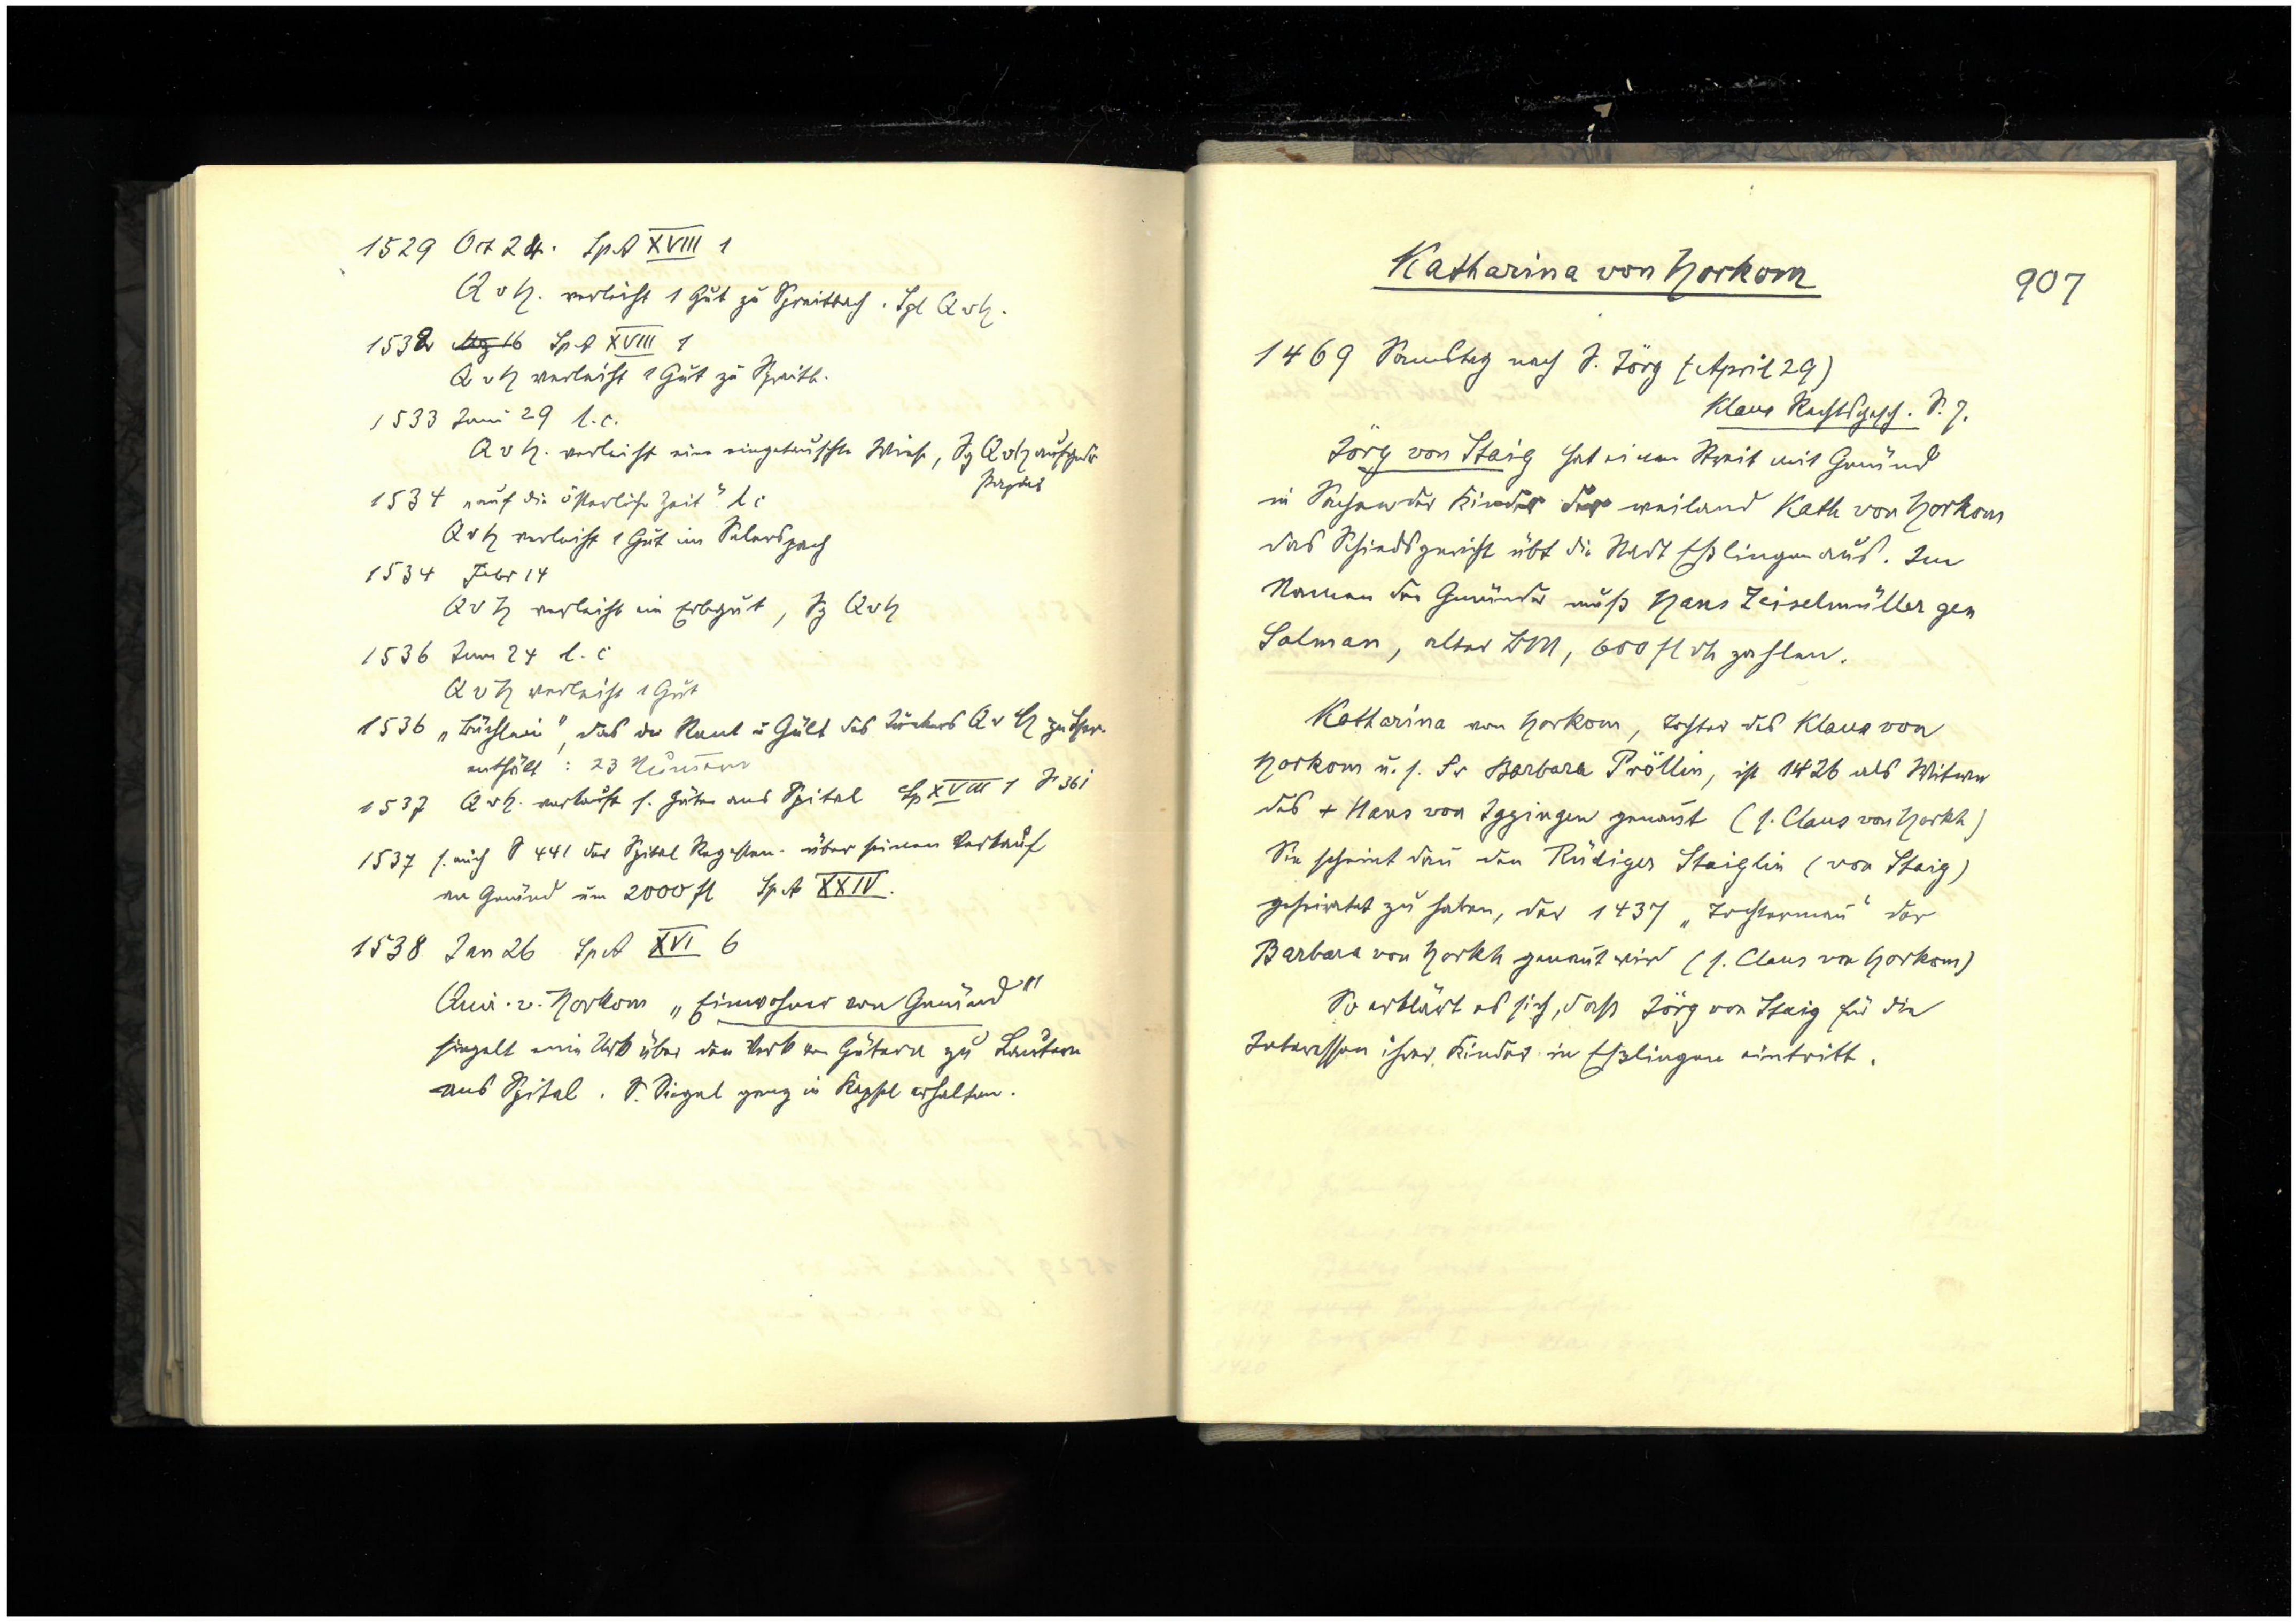 1529 Oct 24. Sp A XVIII 1
Q v H. verleiht 1 Gut zu Spraitbach. Sgl Q v H.
1532 Sp A XVIII 1
Q v H verleiht 1 Gut zu Spraitb.
1533 Juni 29 l.c.
Q v H. verleiht eine eingetauschte Wiese, Sg Q v H
1534 „auf die österliche Zeit" l c
Q v H verleiht 1 Gut im
1534 Febr 14
Q v H verleiht ein Erbgut, Sg Q v H
1536 Juni 24 l. c
Q v H verleiht 1 Gut
1536 „Büchlein", das die Rent u Gült des Junkers Q v H
enthält: 23 Nummern
1537 Q v H. verkauft s. Güter ans Spital Sp XVIII 1 S 361
1537 s. auch S 441 der Spital Regesten über seinen Verkauf
an Gmünd um 2000 fl Sp A XXIV.
1538 Jan 26 Sp A XVI 6
Quir. v. Horkom „Einwohner von Gmünd"
siegelt eine Urk über den Verk von Gütern zu Lautern
ans Spital. S. Siegel ganz in Kapsel erhalten.
Katharina von Horkom
907
1469 Samstag nach S. Jörg (April 29)
Klaus Rechtsgesch. S. 7.
Jörg von Staig hat einen Streit mit Gmünd
in Sachen der Kinder der weiland Kath von Horkom
das Schiedsgericht übt die Stadt Eßlingen aus. Im
Namen der Gmünder muß Hans Zeiselmüller gen
Salman, alter BM, 600 fl rh zahlen.
Katharina von Horkom, Tochter des Klaus von
Horkom u. s. Fr Barbara Pröllin, ist 1426 als Witwe
des + Hans von Iggingen genannt (s. Claus von Horkh)
Sie scheint dann den Rüdiger Staiglin (von Staig)
geheiratet zu haben, der 1437 „Tochterman̄" der
Barbara von Horkh genan̄t wird (s. Claus von Horkom)
So erklärt es sich, daß Jörg von Staig für die
Interessen ihrer Kinder in Eßlingen eintritt.